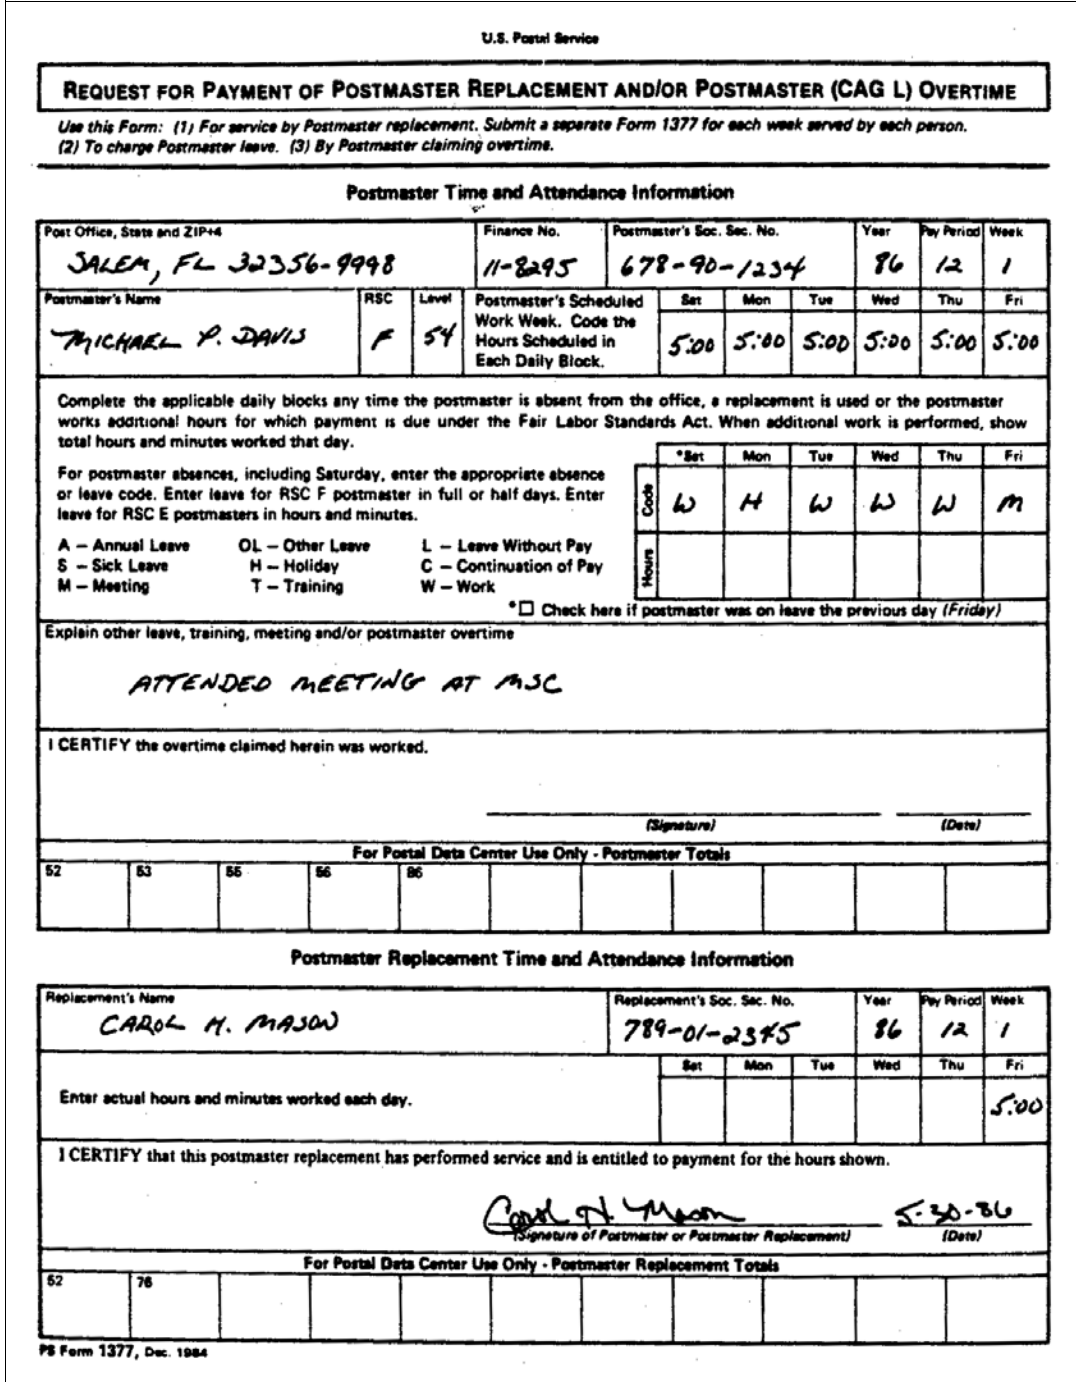 U.S. Postal Service
REQUEST FOR PAYMENT OF POSTMASTER REPLACEMENT AND/OR POSTMASTER (CAG L) OVERTIME
Use this Form: (1) For service by Postmaster replacement. Submit a separate Form 1377 for each week served by each person.
(2) To charge Postmaster leave. (3) By Postmaster claiming overtime.
Postmaster Time and Attendance Information
Post Office, State and ZIP+4 Finance No. Postmaster's Soc. Sec. No. Year Pay Period Week
SALEM, FL 32356-9998 11-8295 678-90-1234 86 12 1
Postmaster's Name RSC Level Postmaster's Scheduled Work Week. Code the Hours Scheduled in Each Daily Block. Sat Mon Tue Wed Thu Fri
MICHAEL P. DAVIS F 54 5:00 5:00 5:00 5:00 5:00 5:00
Complete the applicable daily blocks any time the postmaster is absent from the office, a replacement is used or the postmaster
works additional hours for which payment is due under the Fair Labor Standards Act. When additional work is performed, show
total hours and minutes worked that day.
For postmaster absences, including Saturday, enter the appropriate absence
or leave code. Enter leave for RSC F postmaster in full or half days. Enter
leave for RSC E postmasters in hours and minutes.
A – Annual Leave OL – Other Leave L – Leave Without Pay
S – Sick Leave H – Holiday C – Continuation of Pay
M – Meeting T – Training W – Work
*Sat Mon Tue Wed Thu Fri
Code W H W W W M
Hours
*☐ Check here if postmaster was on leave the previous day (Friday)
Explain other leave, training, meeting and/or postmaster overtime
ATTENDED MEETING AT MSC
I CERTIFY the overtime claimed herein was worked.
(Signature) (Date)
For Postal Data Center Use Only - Postmaster Totals
52 53 55 56 86
Postmaster Replacement Time and Attendance Information
Replacement's Name Replacement's Soc. Sec. No. Year Pay Period Week
CAROL H. MASON 789-01-2345 86 12 1
Sat Mon Tue Wed Thu Fri
Enter actual hours and minutes worked each day. 5:00
I CERTIFY that this postmaster replacement has performed service and is entitled to payment for the hours shown.
Carol H. Mason 5-30-86
(Signature of Postmaster or Postmaster Replacement) (Date)
For Postal Data Center Use Only - Postmaster Replacement Totals
52 76
PS Form 1377, Dec. 1984